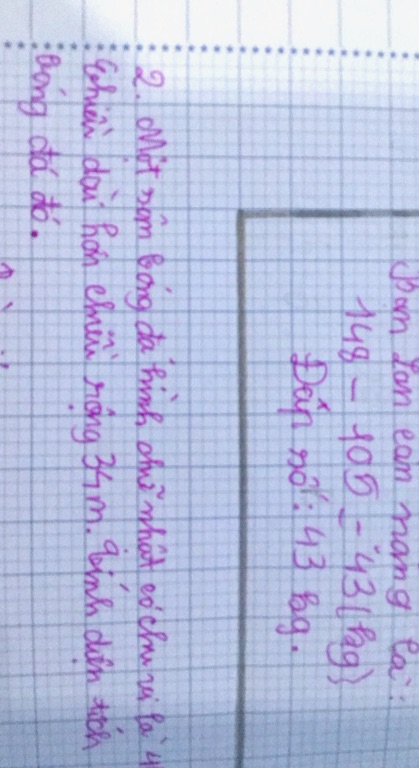 đàn con nặng là:
148 - 105 = 43 (kg)
Đáp số: 43 kg.
2. Một sân bóng đá hình chữ nhật có chu vi là 4
chiều dài hơn chiều rộng 34m. Tính diện tích
bóng đá đó.